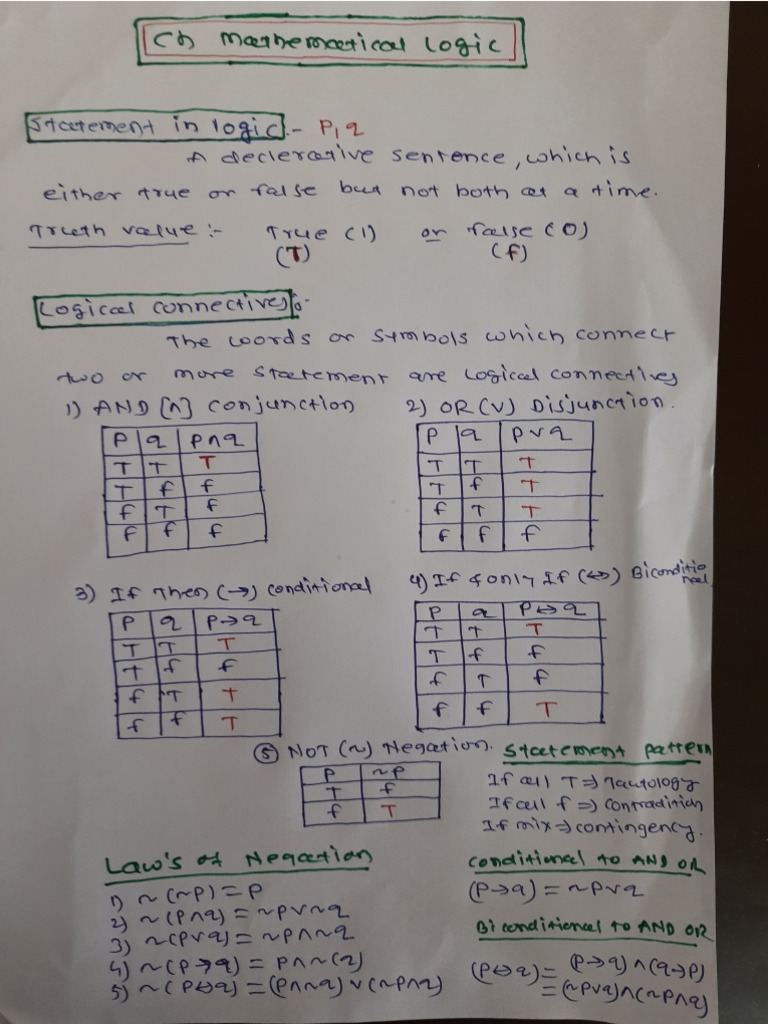 Ch Mathematical Logic
Statement in logic :- P, q
A declerative sentence, which is
either true or false but not both at a time.
Truth value :- True (1) or false (0)
(T) (f)
Logical connectives :-
The words or symbols which connect
two or more statement are logical connectives
1) AND [∧] Conjunction 2) OR (∨) Disjunction.
P q P∧q
T T T
T f f
f T f
f f f
P q P∨q
T T T
T f T
f T T
f f f
3) If Then (→) Conditional 4) If & only If (↔) Biconditional
P q P→q
T T T
T f f
f T T
f f T
P q P↔q
T T T
T f f
f T f
f f T
⑤ NOT (~) Negation.
P ~P
T f
f T
Statement pattern
If all T ⇒ Tautology
If all f ⇒ contradition
If mix ⇒ contingency.
Law's of Negation
1) ~(~P) = P
2) ~(P∧q) = ~P∨~q
3) ~(P∨q) = ~P∧~q
4) ~(P→q) = P∧~(q)
5) ~(P↔q) = (P∧~q)∨(~P∧q)
Conditional to AND OR
(P→q) = ~P∨q
Bi conditional to AND OR
(P↔q) = (P→q)∧(q→P)
= (~P∨q)∧(~P∧q)